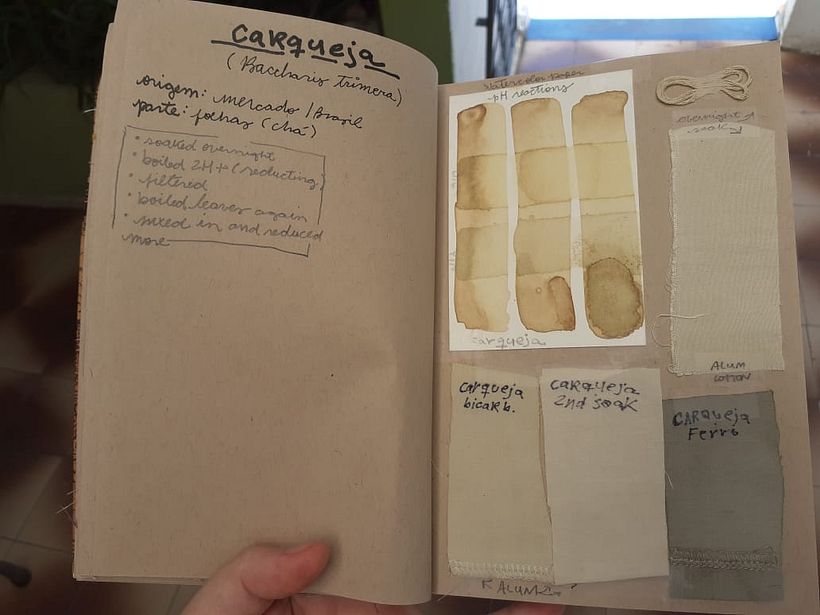 carqueja
(Baccharis Trimera)
origem: mercado / Brasil
parte: folhas (chá)
• soaked overnight
• boiled 2H + (reducting)
• filtered
• boiled leaves again
• mixed in and reduced
more
Watercolor Paper
pH reactions
carqueja
overnight
soak
ALUM
COTTON
carqueja
bicarb.
carqueja
2nd soak
CARqueja
Ferro
ALUM